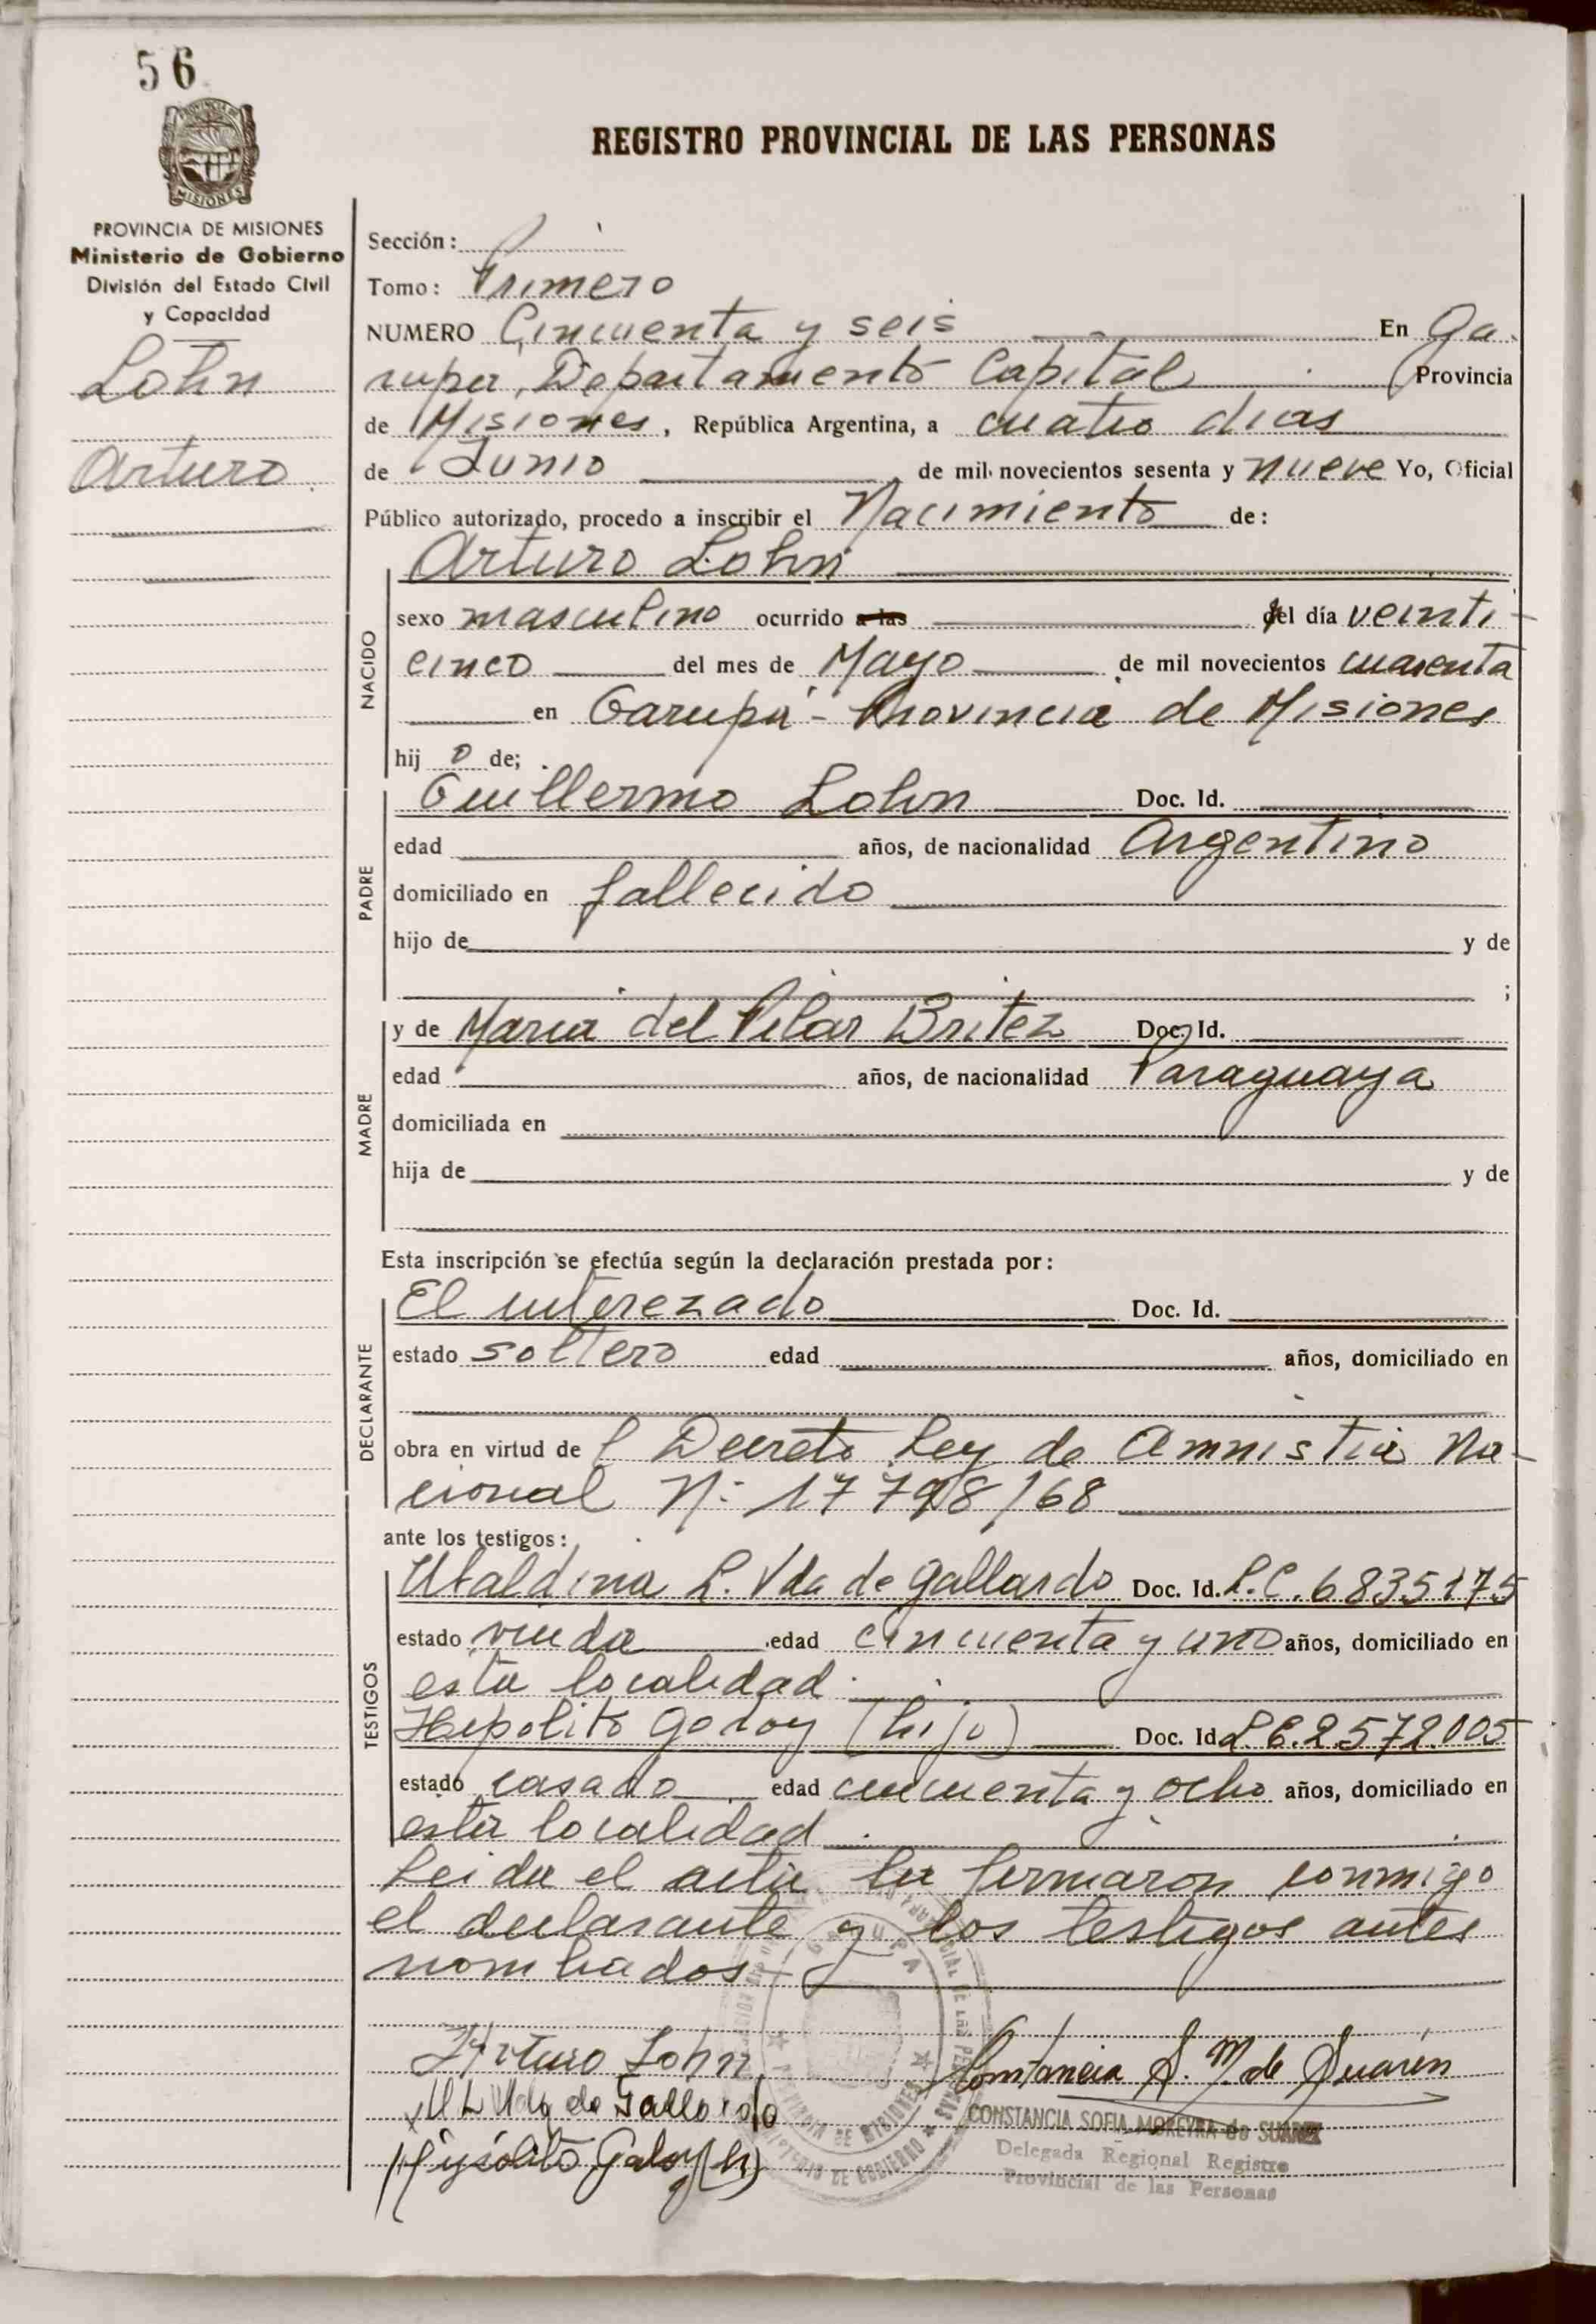 56
REGISTRO PROVINCIAL DE LAS PERSONAS
PROVINCIA DE MISIONES
MISIONES
PROVINCIA DE MISIONES
Ministerio de Gobierno
División del Estado Civil
y Capacidad
Lohn
Arturo
Sección:
Tomo: Primero
NUMERO Cincuenta y seis En Ga-
rupa, Departamento Capital Provincia
de Misiones, República Argentina, a cuatro dias
de Junio de mil novecientos sesenta y nueve Yo, Oficial
Público autorizado, procedo a inscribir el Nacimiento de:
NACIDO
Arturo Lohn
sexo masculino ocurrido a las del día veinti-
cinco del mes de Mayo de mil novecientos cuarenta
en Garupá - Provincia de Misiones
hij o de;
PADRE
Guillermo Lohn Doc. Id.
edad años, de nacionalidad Argentino
domiciliado en fallecido
hijo de y de
;
MADRE
y de Maria del Pilar Britez Doc. Id.
edad años, de nacionalidad Paraguaya
domiciliada en
hija de y de
Esta inscripción se efectúa según la declaración prestada por:
DECLARANTE
El interezado Doc. Id.
estado soltero edad años, domiciliado en
obra en virtud de l Decreto Ley de Amnistia Na-
cional N: 17798/68
ante los testigos:
TESTIGOS
Ubaldina L. Vda de Gallardo Doc. Id. L.C. 6835175
estado viuda edad cincuenta y uno años, domiciliado en
esta localidad.
Hipolito Godoy (hijo) Doc. Id. L.E. 2.572.005
estado casado edad cincuenta y ocho años, domiciliado en
esta localidad.
Leida el acta la firmaron conmigo
el declarante y los testigos antes
nombrados
GARUPA
PROVINCIA DE MISIONES
MINISTERIO DE GOBIERNO
Arturo Lohn
U L Vda de Gallardo
Hipolito Godoy (h)
Constancia S. M. de Suarez
CONSTANCIA SOFIA MOREYRA de SUAREZ
Delegada Regional Registro
Provincial de las Personas